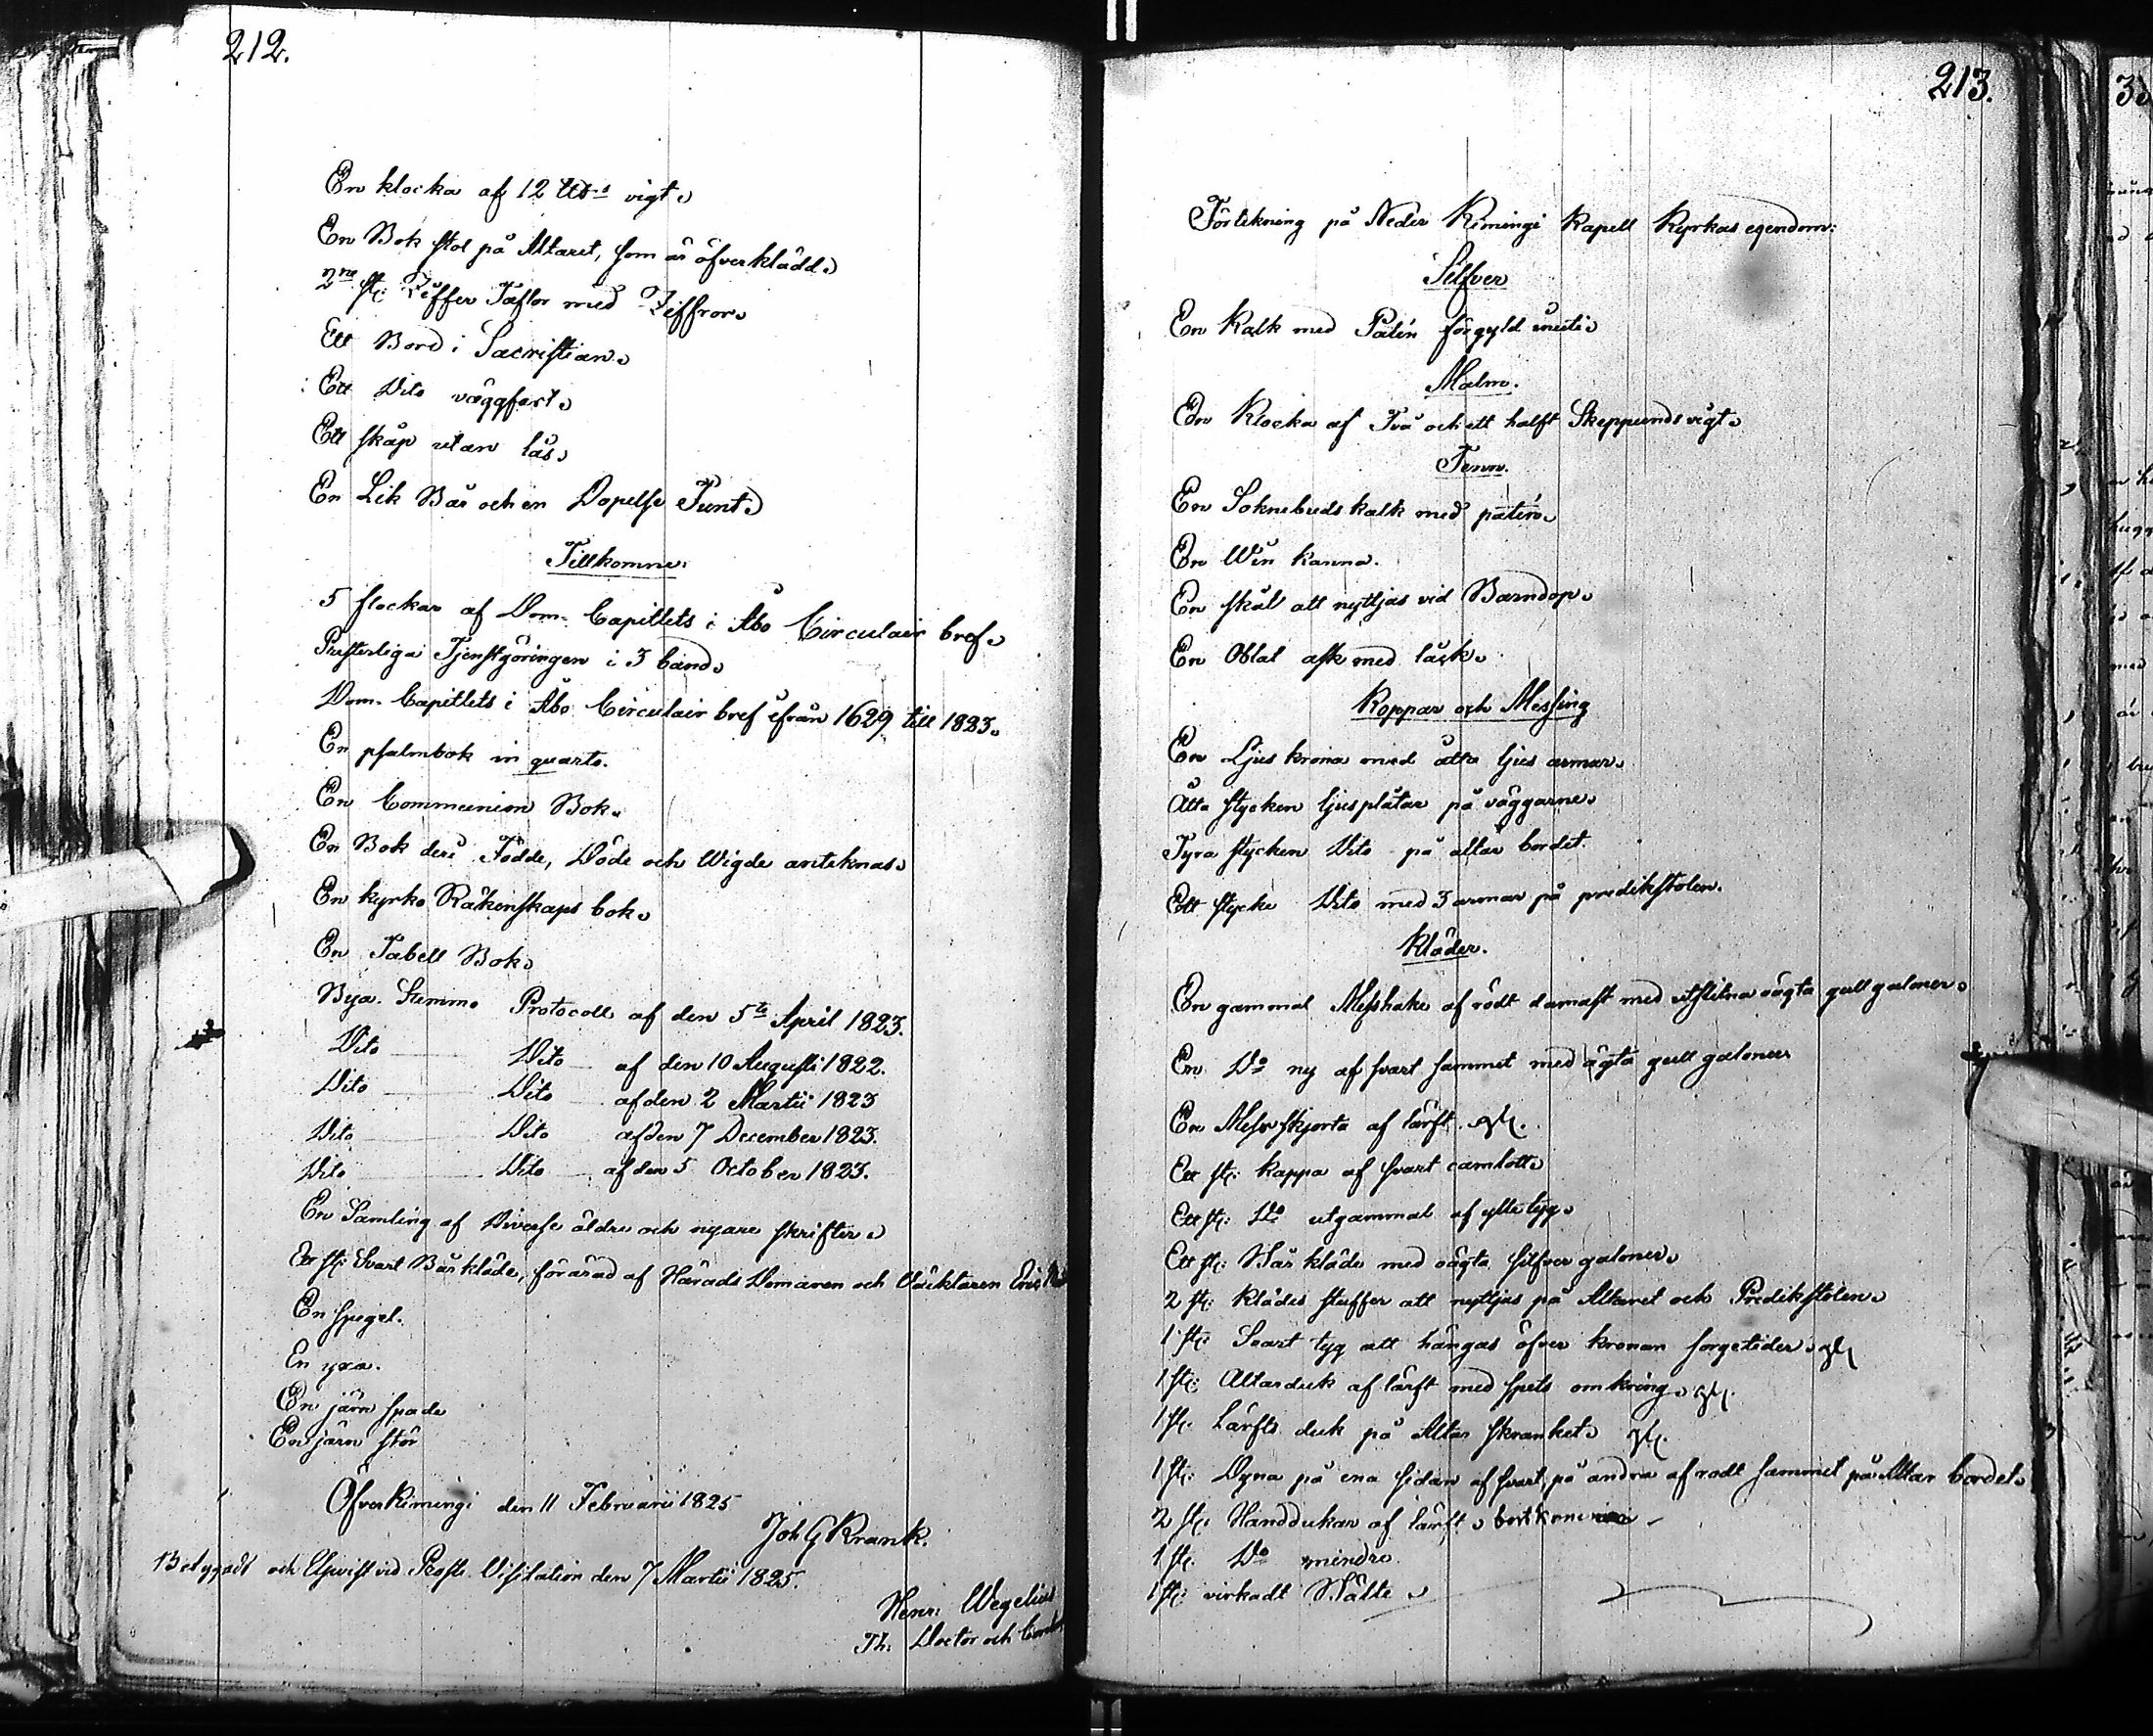 212.
En klocka af 12 vigt.
En Bok stol på Altaret, som är öfverklädd.
2ne st: Ziffer Taflor med Ziffror.
Ett Bord i Sacristian.
Ett Dito väggfast.
Ett skåp utan lås.
En Lik Bår och en Dopelse Funt.
Tillkomne:
5 stockar af Dom-Capitlets i Åbo Circulair bref.
Presterliga Tjenstgöringen i 3 band.
Dom-Capitlets i Åbo Circulair bref ifrån 1629 till 1823.
En psalmbok in quarto.
En Communion Bok.
En Bok deri Födde, Döde och Wigde anteknas.
En kyrko Räkenskaps bok.
En Tabell Bok.
Bya-Stemmo Protocoll af den 5te April 1823.
Dito Dito af den 10 Augusti 1822.
Dito Dito af den 2 Martii 1823
Dito Dito af den 7 December 1823.
Dito Dito af den 5 October 1823.
En Samling af Diverse äldre och nyare skrifter.
Ett st: Svart Bårkläde, förärad af Härads Domaren och Eric
En spegel.
En yxa.
En järn spade
En järn stör
Öfverkimingi den 11 Februarii 1825
Joh G Krank.
Betygadt och Uppvist vid Prosts-Visitation den 7 Martii 1825.
Henr: Wegelius
Th: Doctor och
213.
Förtekning på Neder Kimingi Kapell Kyrkas egendom:
Silfver
En Kalk med Patén förgyld inuti.
Malm.
En Klocka af Två och ett halft Skeppunds vigt.
Tenn.
En Soknebuds kalk med patén.
En Win kanna.
En skål att nyttjas vid Barndop.
En Oblat ask med låck.
Koppar och Messing
En Ljus krona med åtta ljus armar.
Åtta stycken ljusplåtar på väggarne.
Fyra stycken Dito på altar bordet.
Ett stycke Dito med 3 armar på predikstolen.
Kläder.
En gammal Messhake af rödt damast med utslitna oägta gull galoner.
En Do ny af svart sammet med ägta gull galoner
En Messe skjorta af lärft.
Ett st: kappa af svart camlott.
Ett st: Do utgammal af ylletyg.
Ett st: Bår kläde med oägta silfver galoner.
2 st: klädes stuffer att nyttjas på Altaret och Predikstolen.
1 st: Svart tyg att hängas öfver kronan sorgetider.
1 st: Altarduk af lärft med spets omkring.
1 st: Lärfts duk på Altar skranket.
1 st: Dyna på ena sidan af svart på andra af rödt sammet på Altar bordet.
2 st: Handdukar af lärft.
1 st: Do mindre
1 st: virkadt Bälte